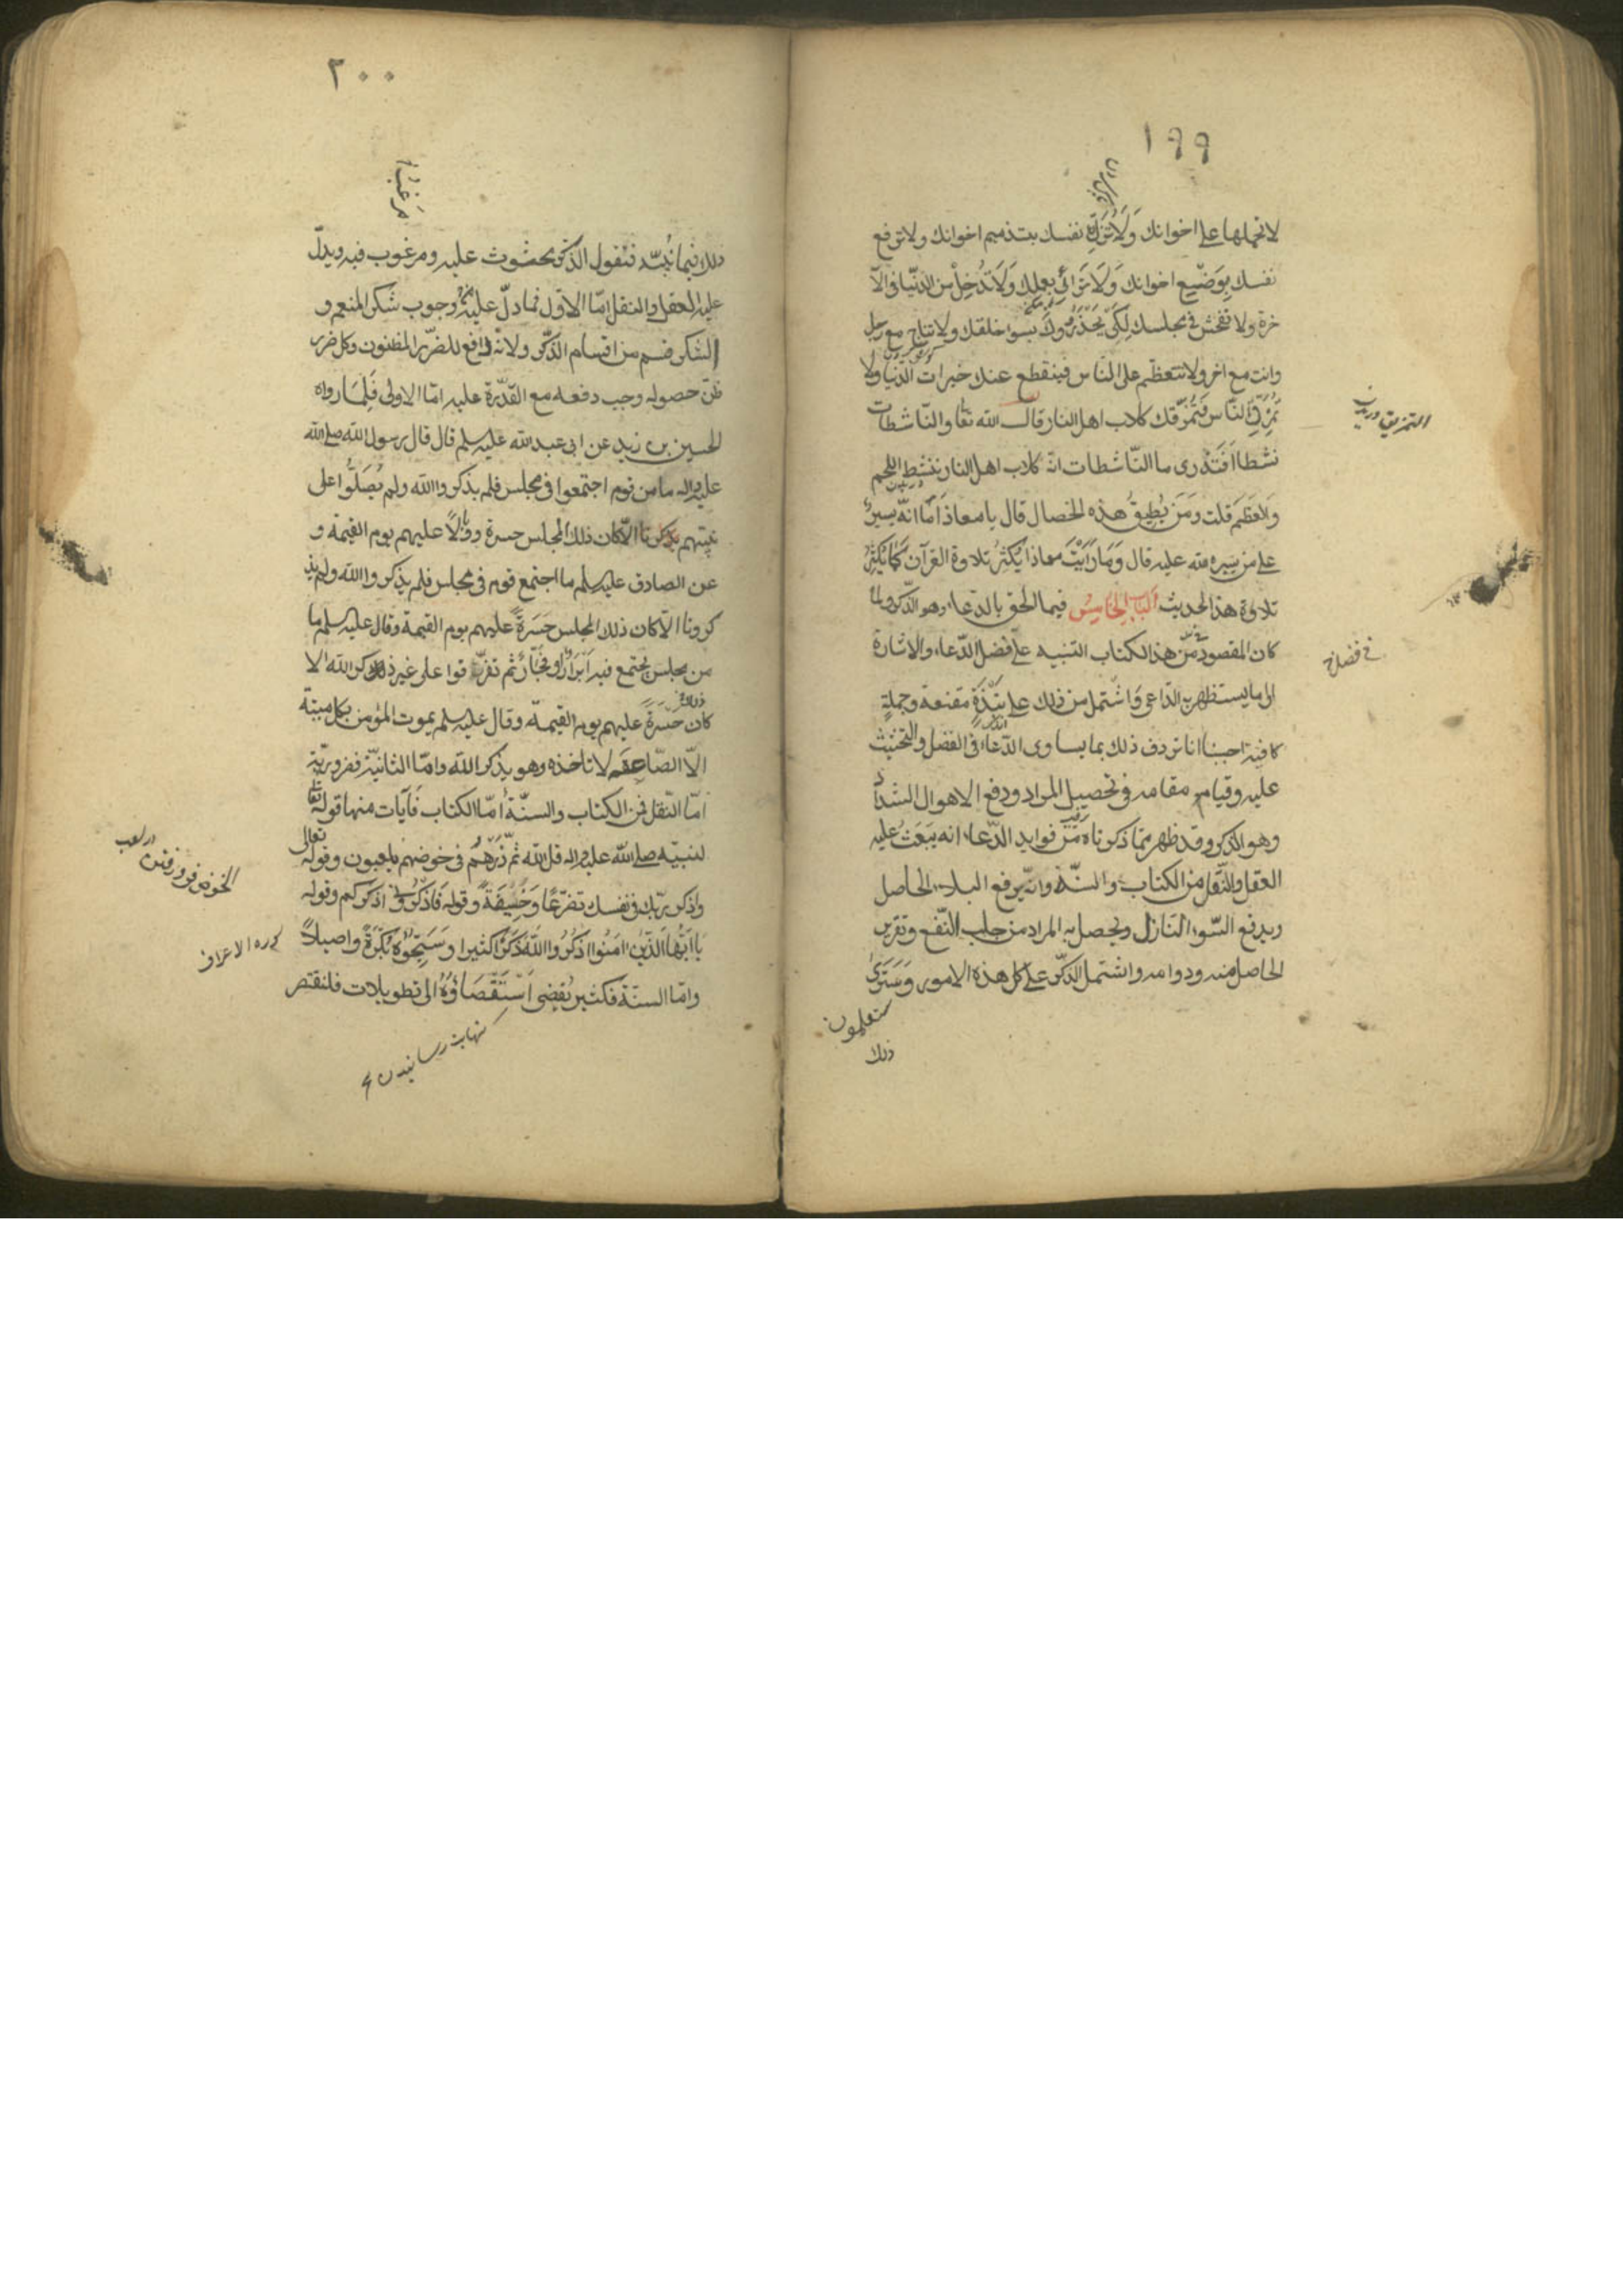 ١٩٩
لا تحملها على اخوانك وَلَا تُزَكِّ نفسك بتذميم اخوانك ولا ترفع
نفسك بِوَضْيعِ اخوانك وَلَا تَرَائي بعملك وَلَا تُدْخِلْ من الدنيا فى الآ
خرة ولا تفحش فى مجلسك لِكَىْ يَحْذَرُوكَ بسوا خلقك ولا تناج مع رجل
وانت مع اخر ولا تتعظم على الناس فينقطع عنك خيرات الدنيا ولا
تُمَزِّقِ الناس فَتُمَزِّقك كلاب اهل النار قال الله تعا والنّاشطات
نشطا اَفَتَدْرى ما النّاشطات انّه كلاب اهل النار تنشط اللحم
والعَظْم قلت ومَن يُطيقُ هذه الخصال قال يا معاذ اَمَا انّه يسيرٌ
على من يسره الله عليه قال وَمَا رَاَيْتُ معاذا يُكْثِرُ تلاوة القرآن كَمَا يُكْثِرُ
تلاوة هذا الحديث اَلْبَابُ الخَامِسُ فيما الحق بالدعاء وهو الذكر ولما
كان المقصود من هذا الكتاب التنبيه على فضل الدّعاء والاشارة
الى ما يستظهر به الدّاعى وَاشتمل من ذلك على نُبْذَةٍ مقنعة وجملةٍ
كافية احببنا ان نردف ذلك بما يساوى الدّعاء فى الفضل والتحثيث
عليه وقيامه مقامه فى تحصيل المراد ودفع الاهوال الشداد
وهو الذكر وقد ظهر ممّا ذكرناه مِنْ فوايد الدّعاء انه يَبْعَثُ عليه
العقل والنّقل من الكتاب والسنّة وانّه يرفع البلاء الحاصل
ويدفع السّوء النّازل ويحصل به المراد من جلب النّفع وتقرير
الحاصل منه ودوامه واشتمل الذكر على كل هذه الامور وَسَتَرىٰ
ستعلمون
ذلك
التمزيق دريدن
فى فضل
٢٠٠
مَرغَباً
ذلك فيما نُبَيِّنه فنقول الذكر محثوث عليه ومرغوب فيه ويدلّ
عليه العقل والنقل امّا الاوّل فما دلّ عليه وجوب شكر المنعم و
الشكر قسم من اقسام الذّكر ولانّه دافع للضرر المظنون وكل ضرر
ظن حصوله وجب دفعه مع القدرة عليه امّا الاولى فَلِمَا رواه
الحسين بن زيد عن ابى عبد الله عليه سلم قال قال رسول الله صلى الله
عليه واله ما من قوم اجتمعوا فى مجلس فلم يذكروا الله ولم يُصَلُّوا على
نبيّهم الّا كان ذلك المجلس حسرة ووبالاً عليهم يوم القيمة و
عن الصادق عليه سلم ما اجتمع قوم فى مجلس فلم يذكروا الله ولم يذ
كرونا الّا كان ذلك المجلس حَسْرَةً عليهم يوم القيمة وقال عليه سلم ما
من مجلس يجتمع فيه اَبْرَارٌ و فُجَّارٌ ثم تفرّقوا على غير ذكر الله الا
كان حَسْرَةً عليهم يوم القيمة وقال عليه سلم يموت المؤمن بكل ميتة
الّا الصّاعقه لا تاخذه وهو يذكر الله وامّا الثانيّة فضروريّة
امّا النّقل فمن الكتاب والسنّة امّا الكتاب فَآيات منها قوله تعا
لنبيّه صلى الله عليه واله قل الله ثمّ ذَرْهُم فى خوضهم يلعبون وقوله تعالى
واذكر ربّك فى نفسك تضرّعًا وَخِيفَةً وقوله فَاذْكُرُونى اذكركم وقوله
يا ايّها الّذين امَنُوا اذْكُرُوا اللهَ ذِكْرًا كثيرا وَسَبِّحُوهُ بُكْرَةً واصيلاً
وامّا السنّة فكثير يُفضى اسْتِقْصَاؤُهُ الى تطويلات فلنقتصر
نهايت رسانيدن
الخوض فرو رفتن
سوره الاعراف